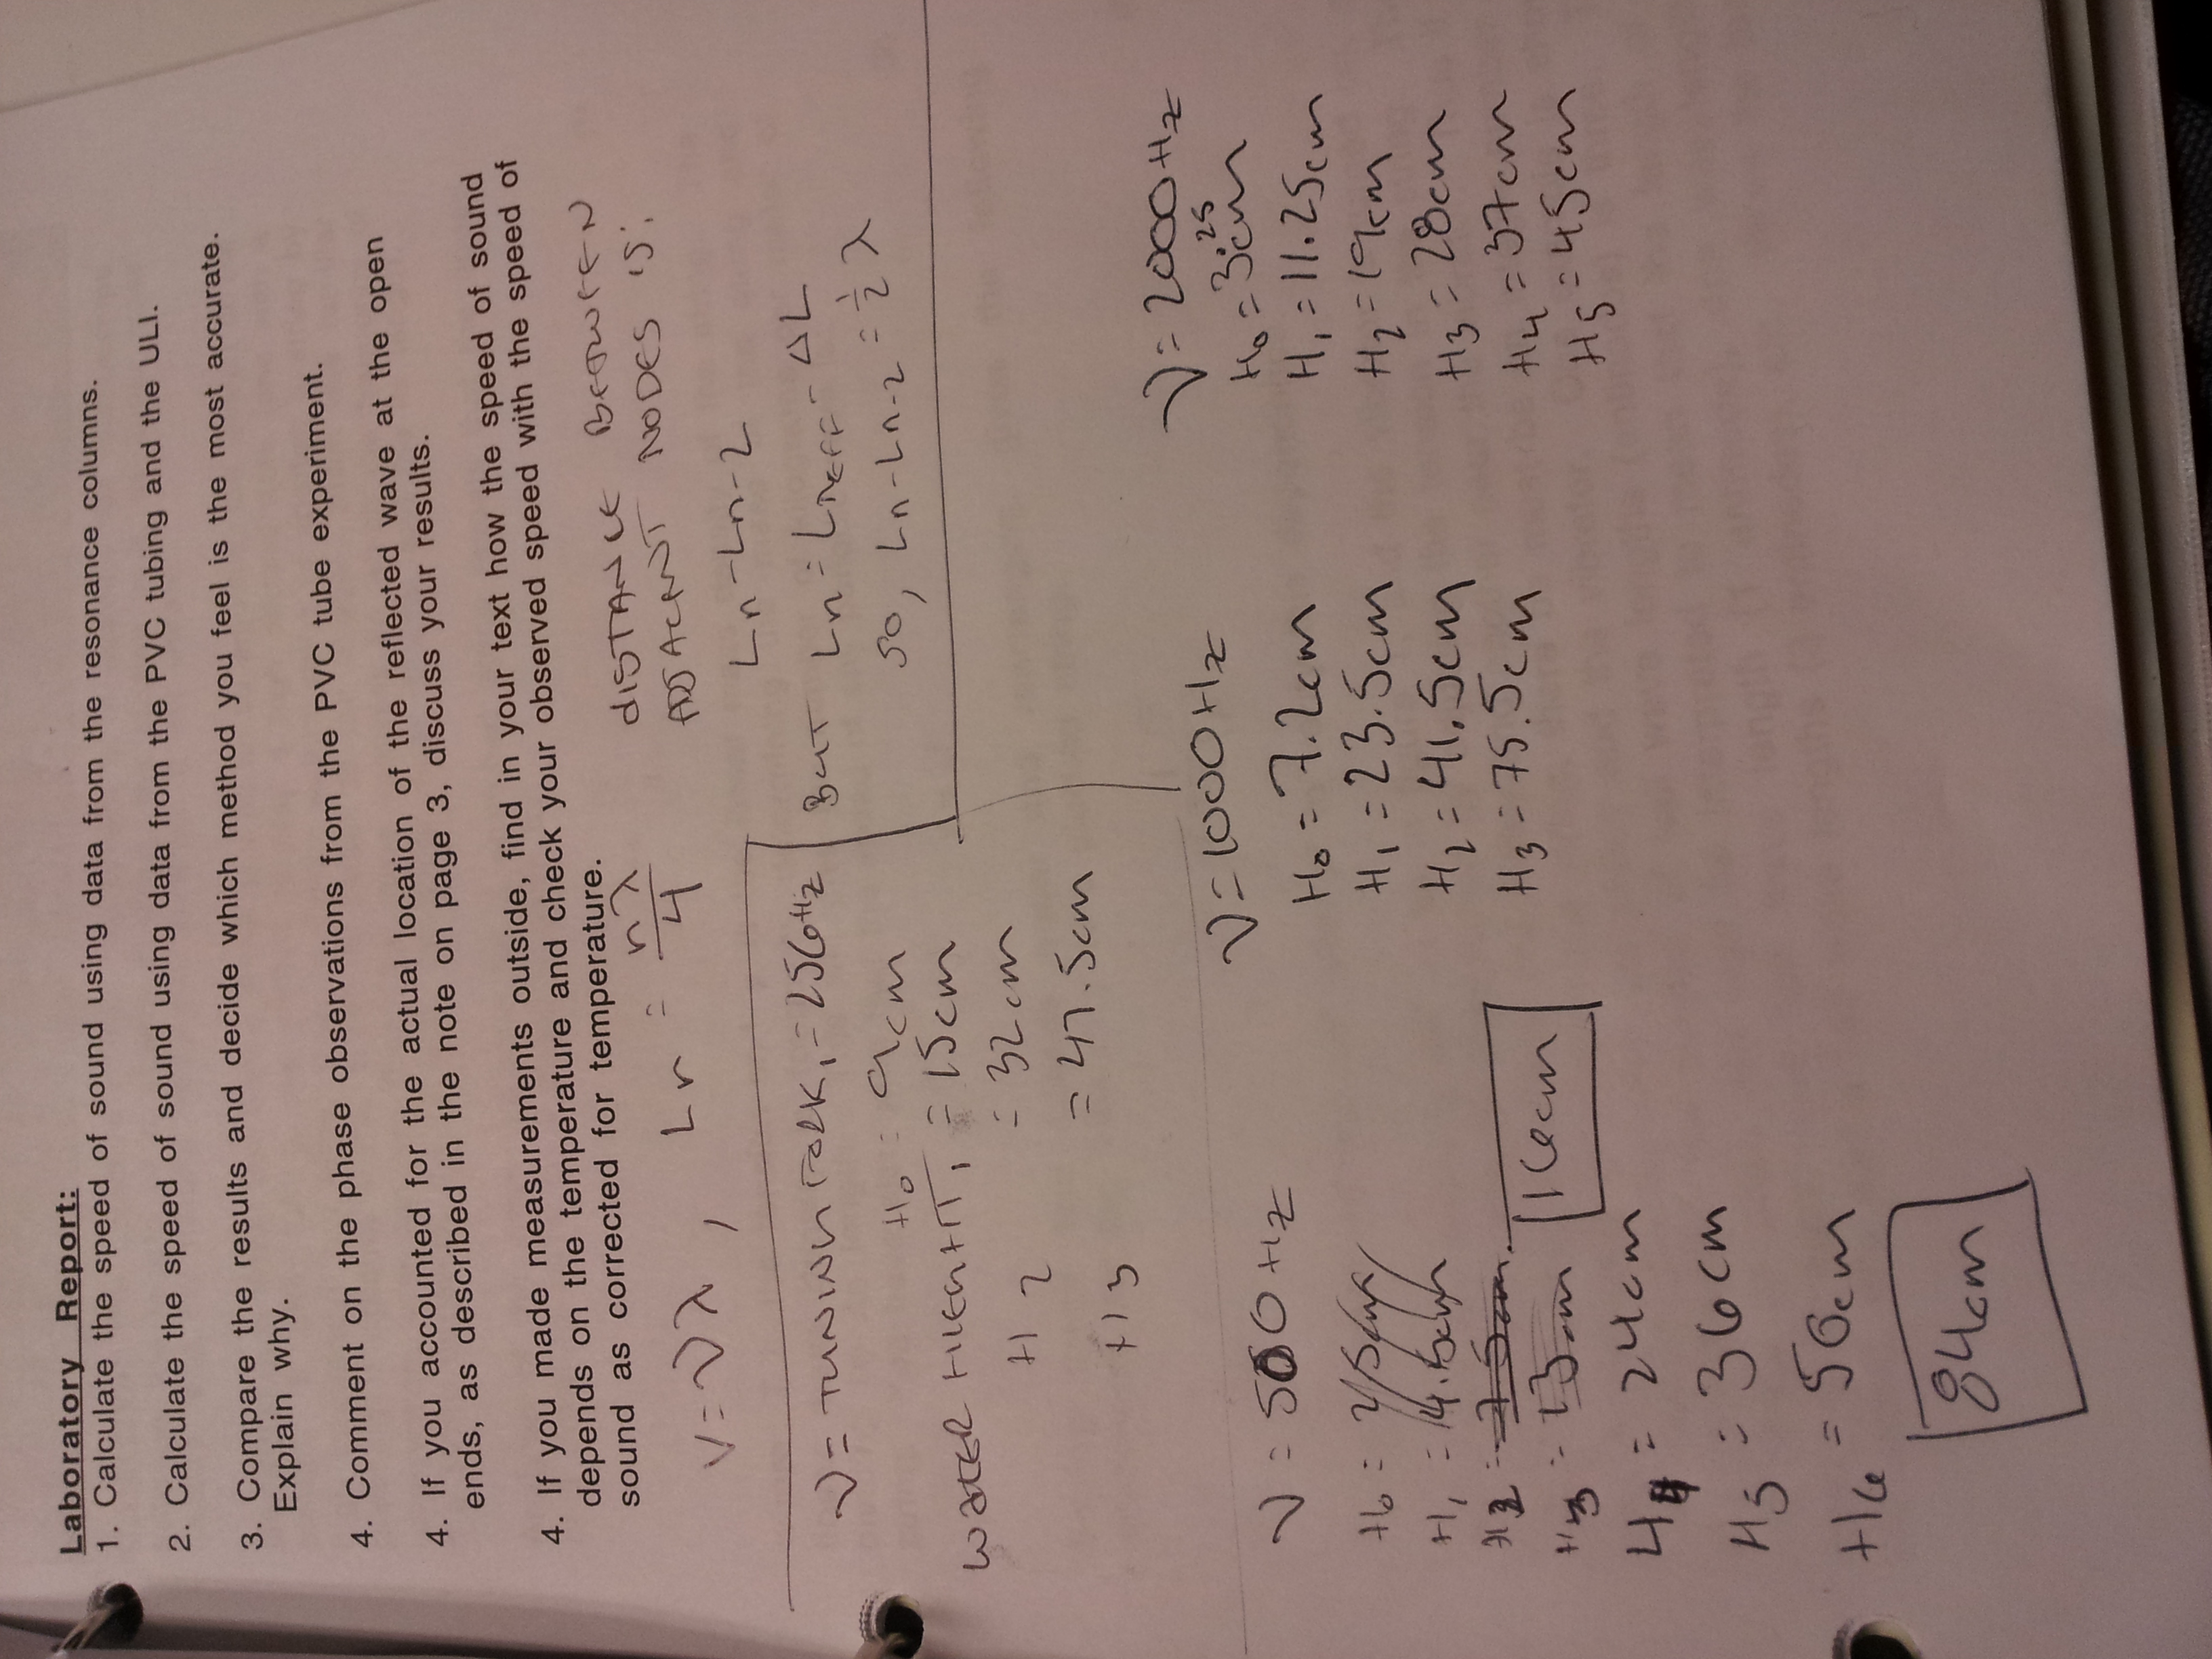 Laboratory Report:
1. Calculate the speed of sound using data from the resonance columns.
2. Calculate the speed of sound using data from the PVC tubing and the ULI.
3. Compare the results and decide which method you feel is the most accurate.
Explain why.
4. Comment on the phase observations from the PVC tube experiment.
4. If you accounted for the actual location of the reflected wave at the open
ends, as described in the note on page 3, discuss your results.
4. If you made measurements outside, find in your text how the speed of sound
depends on the temperature and check your observed speed with the speed of
sound as corrected for temperature.
V = νλ, Ln = nλ/4
DISTANCE BETWEEN
ADJACENT NODES IS:
Ln - Ln-2
BUT Ln = Lneff - ΔL
SO, Ln - Ln-2 = 1/2 λ
ν = TUNING FORK, = 256Hz
H0 = 9cm
WATER HEIGHT H1 = 15cm
H2 = 32cm
H3 = 47.5cm
ν = 500Hz
H1 = 14.5cm
H3 = 13cm
16cm
H4 = 24cm
H5 = 36cm
H6 = 50cm
84cm
ν = 1000Hz
H0 = 7.2cm
H1 = 23.5cm
H2 = 41.5cm
H3 = 75.5cm
ν = 2000Hz
H0 = 3.25cm
H1 = 11.25cm
H2 = 19cm
H3 = 28cm
H4 = 37cm
H5 = 45cm